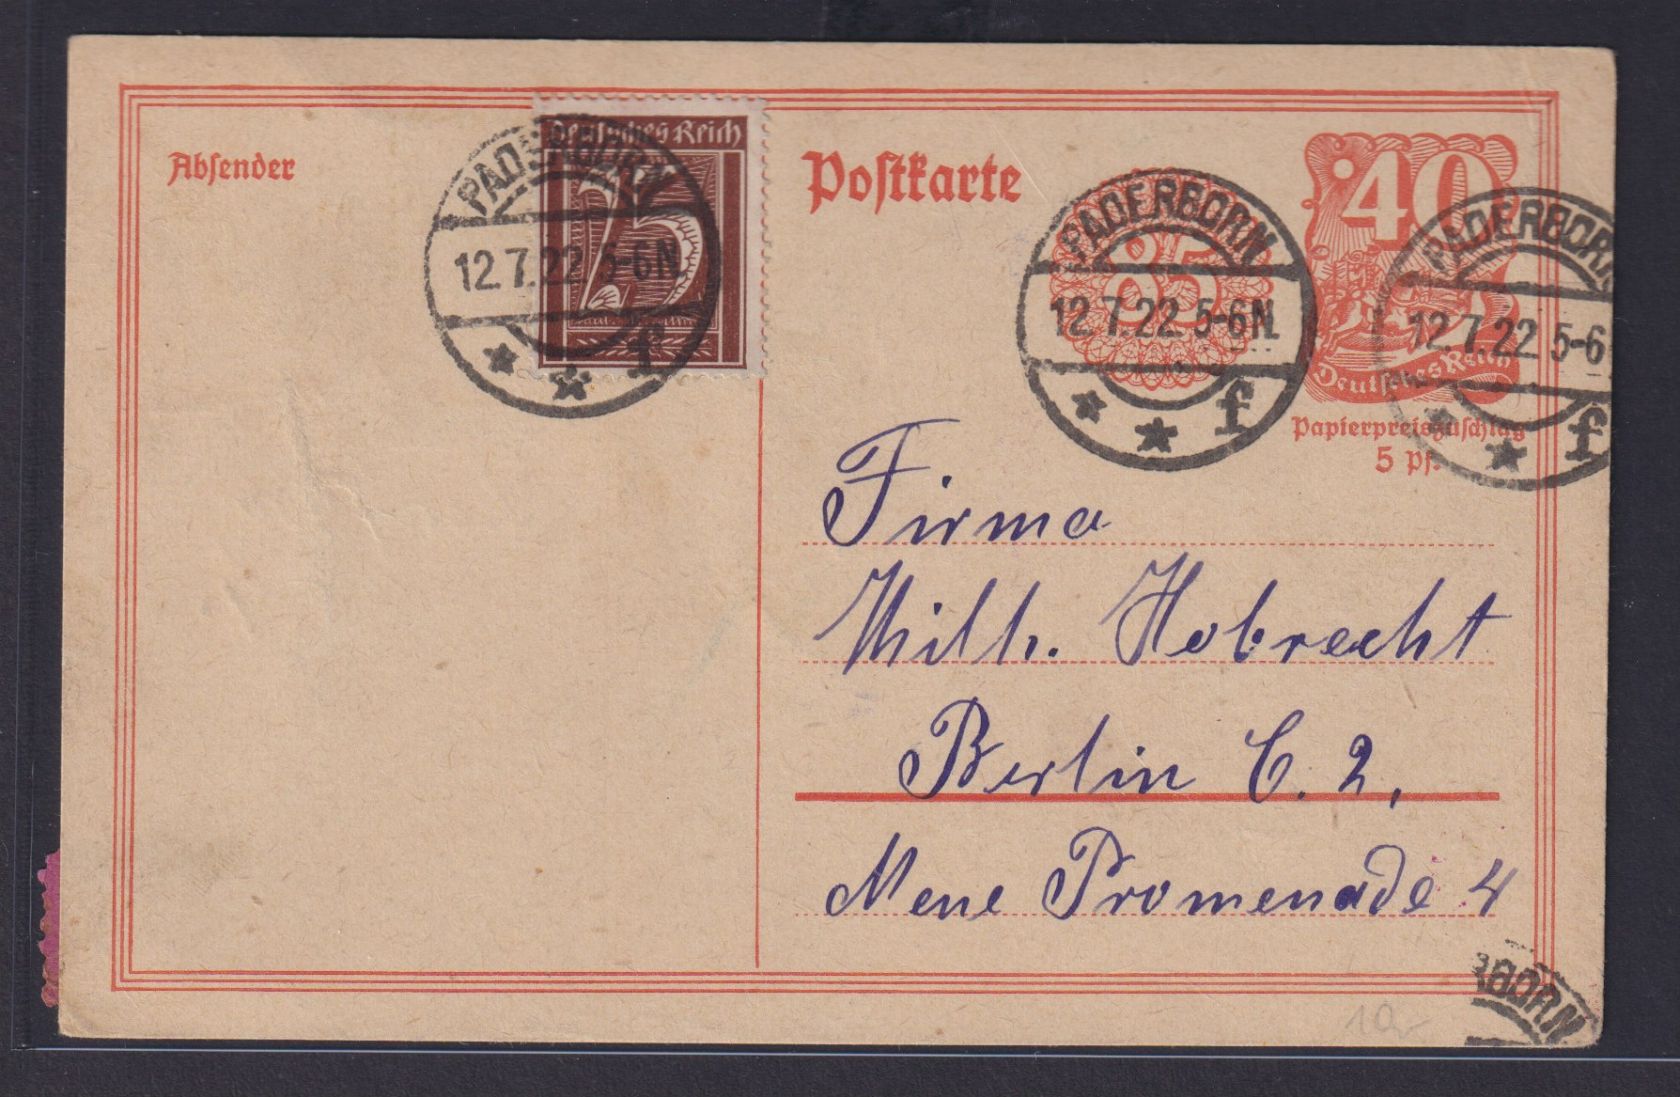 Absender
Deutsches Reich
75
PADERBORN
12.7.22. 5-6N.
f
Postkarte
85
PADERBORN
12.7.22. 5-6N.
f
40
Deutsches Reich
PADERBORN
12.7.22. 5-6
f
Papierpreiszuschlag
5 Pf.
Firma
Wilh. Hobrecht
Berlin C. 2,
Neue Promenade 4
RBORN